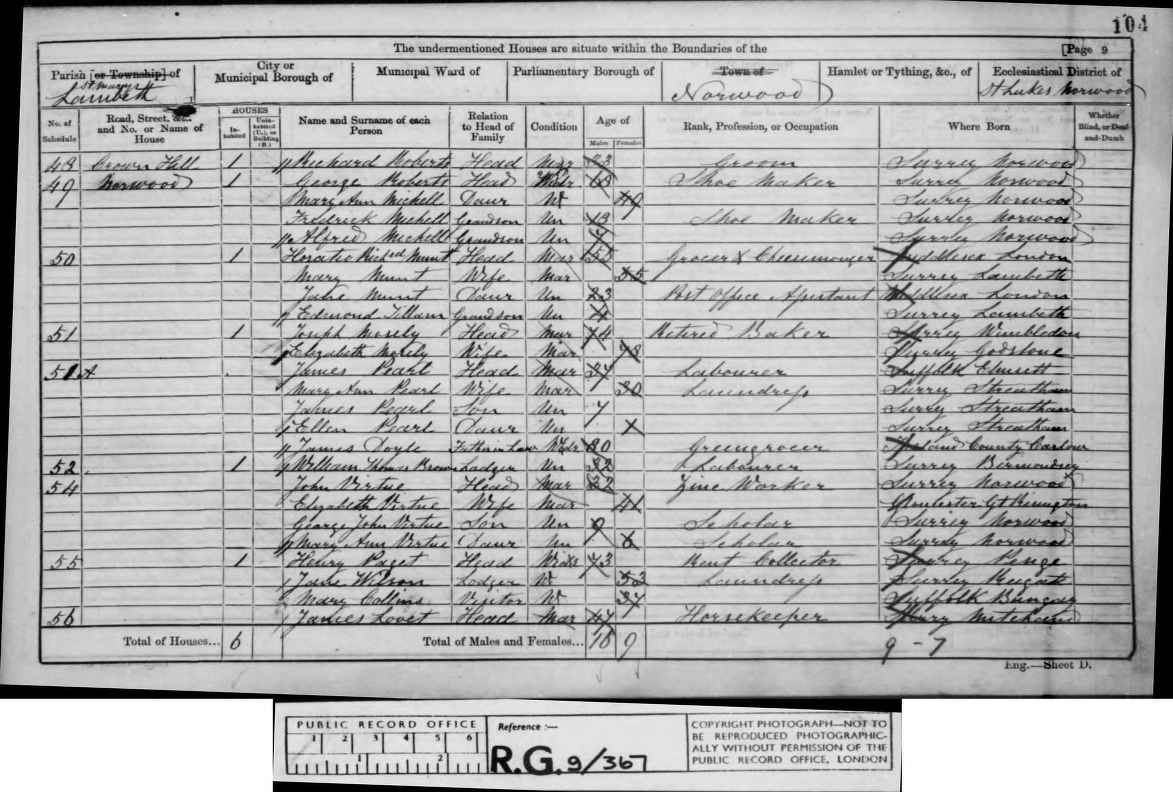 104
The undermentioned Houses are situate within the Boundaries of the [Page 9
Parish [or Township] of St Marys Lambeth
City or Municipal Borough of
Municipal Ward of
Parliamentary Borough of
Town of Norwood
Hamlet or Tything, &c., of
Ecclesiastical District of St Lukes Norwood
No. of Schedule
Road, Street, &c., and No. or Name of House
HOUSES
Inhabited
Uninhabited (U.), or Building (B.)
Name and Surname of each Person
Relation to Head of Family
Condition
Age of
Males
Females
Rank, Profession, or Occupation
Where Born
Whether Blind, or Deaf-and-Dumb
48 Crown Hill 1 Richard Roberts Head Marr 23 Groom Surrey Norwood
49 Norwood 1 George Roberts Head Widr 63 Shoe Maker Surrey Norwood
Mary Ann Michell Daur W 49 Surrey Norwood
Fredrick Michell Grandson Un 19 Shoe Maker Surrey Norwood
Alfred Michell Grandson Un Surrey Norwood
50 1 Horatio Richd Munt Head Marr 55 Grocer & Cheesemonger Middlesex London
Mary Munt Wife Mar 55 Surrey Lambeth
Jane Munt Daur Un 23 Post Office Assistant Middlesex London
Edmond Grandson Un 4 Surrey Lambeth
51 1 Joseph Morely Head Mar 74 Retired Baker Surrey Wimbledon
Elizabeth Morely Wife Mar 78 Surrey Godstone
51A James Pearl Head Mar 34 Labourer Suffolk
Mary Ann Pearl Wife Mar 30 Laundress Surrey Streatham
James Pearl Son Un 7 Surrey Streatham
Ellen Pearl Daur Un Surrey Streatham
James Doyle Father in Law Widr 80 Greengrocer Ireland County Carlow
52 1 William Thomas Brown Lodger Un 32 Labourer Surrey Bermondsey
54 John Virtue Head Mar 32 Zinc Worker Surrey Norwood
Elizabeth Virtue Wife Mar 41 Gloucester Gt
George John Virtue Son Un 9 Scholar Surrey Norwood
Mary Ann Virtue Daur Un 6 Scholar Surrey Norwood
55 1 Henry Paget Head Widr 43 Rent Collector Surrey Penge
Jane Wilson Lodger W 52 Laundress Surrey Reigate
Mary Collins Visitor W 34 Suffolk Bungay
56 James Lovet Head Mar 47 Horsekeeper Surry Mitcham
Total of Houses... 6 Total of Males and Females... 16 9 9 - 7
Eng.—Sheet D.
PUBLIC RECORD OFFICE
1 2 3 4 5 6
1 2
Reference :—
R.G. 9/367
COPYRIGHT PHOTOGRAPH—NOT TO
BE REPRODUCED PHOTOGRAPHIC-
ALLY WITHOUT PERMISSION OF THE
PUBLIC RECORD OFFICE, LONDON